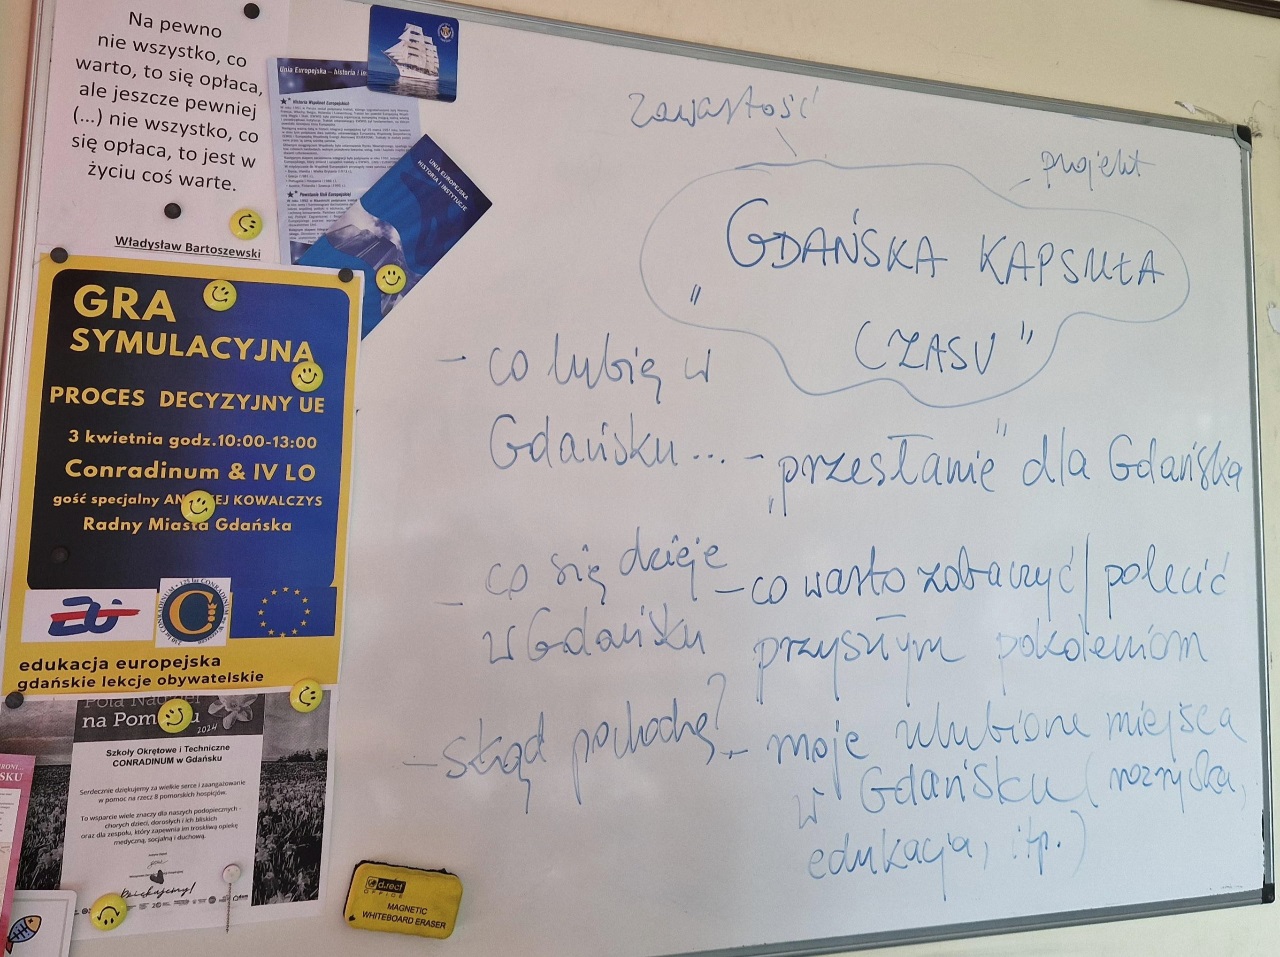 Na pewno
nie wszystko, co
warto, to się opłaca,
ale jeszcze pewniej
(...) nie wszystko, co
się opłaca, to jest w
życiu coś warte.
Władysław Bartoszewski
Unia Europejska – historia i in
Historia Wspólnot Europejskich
Powstanie Unii Europejskiej
UNIA EUROPEJSKA
HISTORIA I INSTYTUCJE
GRA
SYMULACYJNA
PROCES DECYZYJNY UE
3 kwietnia godz.10:00-13:00
Conradinum & IV LO
gość specjalny AN EJ KOWALCZYS
Radny Miasta Gdańska
edukacja europejska
gdańskie lekcje obywatelskie
na Pom u
2024
Szkoły Okrętowe i Techniczne
CONRADINUM w Gdańsku
Serdecznie dziękujemy za wielkie serce i zaangażowanie
w pomoc na rzecz 8 pomorskich hospicjów.
To wsparcie wiele znaczy dla naszych podopiecznych -
chorych dzieci, dorosłych i ich bliskich
oraz dla zespołu, który zapewnia im troskliwą opiekę
medyczną, socjalną i duchową.
Dziękujemy!
SKU
d.rect
OFFICE
MAGNETIC
WHITEBOARD ERASER
zawartość
projekt
„GDAŃSKA KAPSUŁA
CZASU"
- co lubię w
Gdańsku...
- co się dzieje
w Gdańsku
- skąd pochodzę?
- „przesłanie" dla Gdańska
- co warto zobaczyć/polecić
przyszłym pokoleniom
- moje ulubione miejsca
w Gdańsku (rozrywka,
edukacja, itp.)